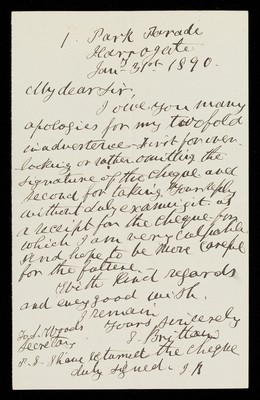 1. Park Parade
Harrogate
Jany 31st 1890.
My dear Sir,
I owe you many
apologies for my twofold
inadvertence first for over-
looking or rather omitting the
signature of the cheque and
second for taking your reply
without duly examing it as
a receipt for the cheque for
which I am very culpable
and hope to be more careful
for the future.
With kind regards
and every good wish.
I remain
Yours sincerely
To J. Woods
J. Brittain
Secretary
P.S. I have returned the cheque
duly signed. J B